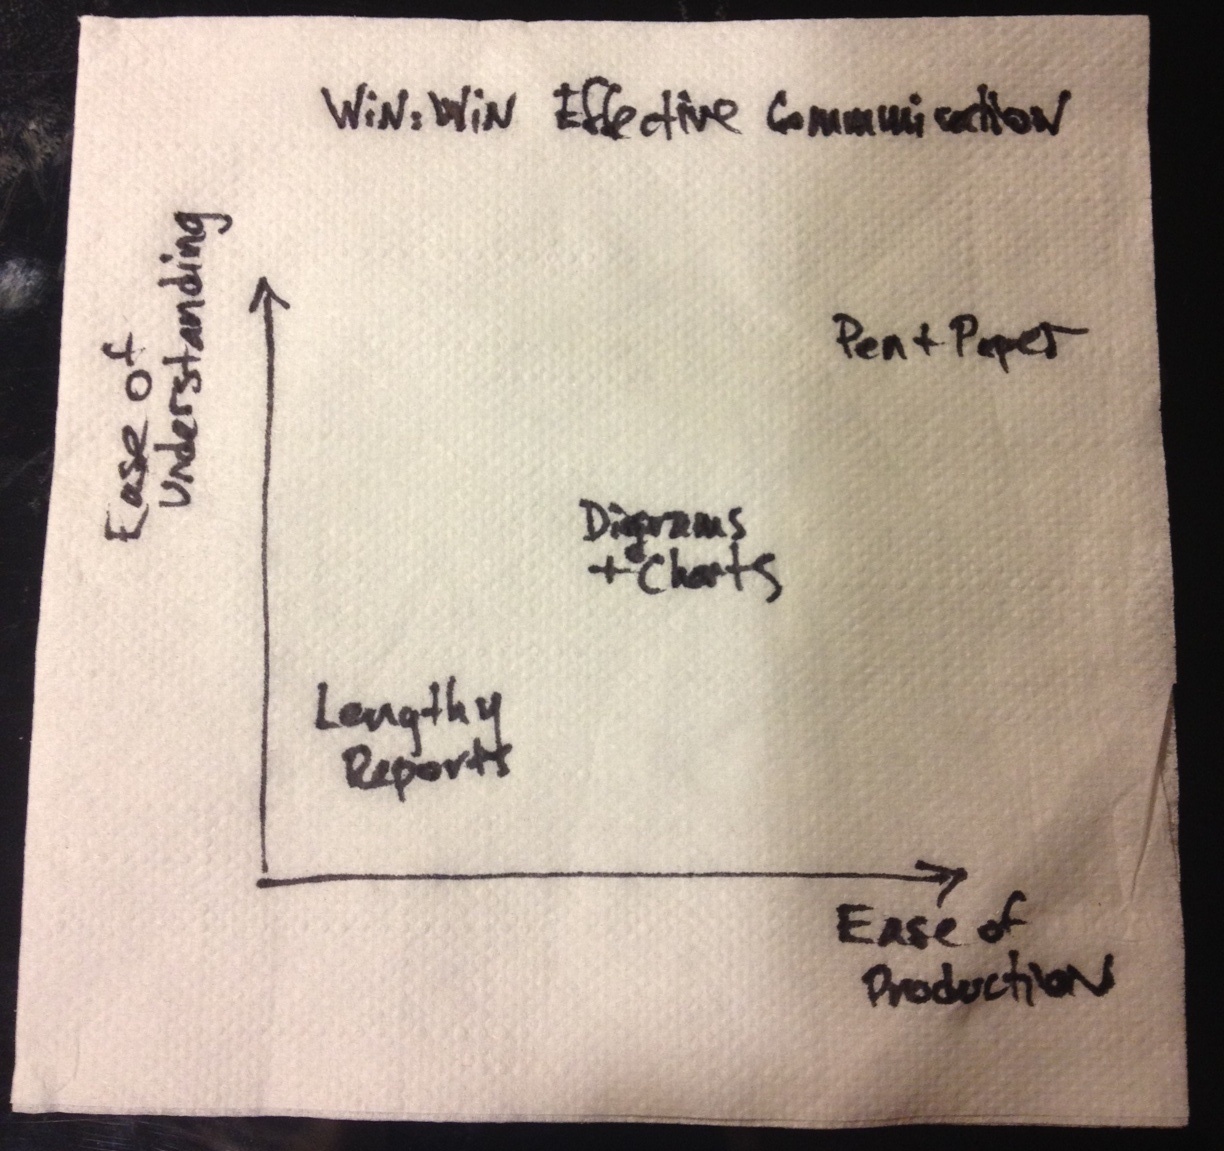 Win:Win Effective Communication
Ease of
Understanding
Pen + Paper
Diagrams
+ Charts
Lengthy
Reports
Ease of
Production